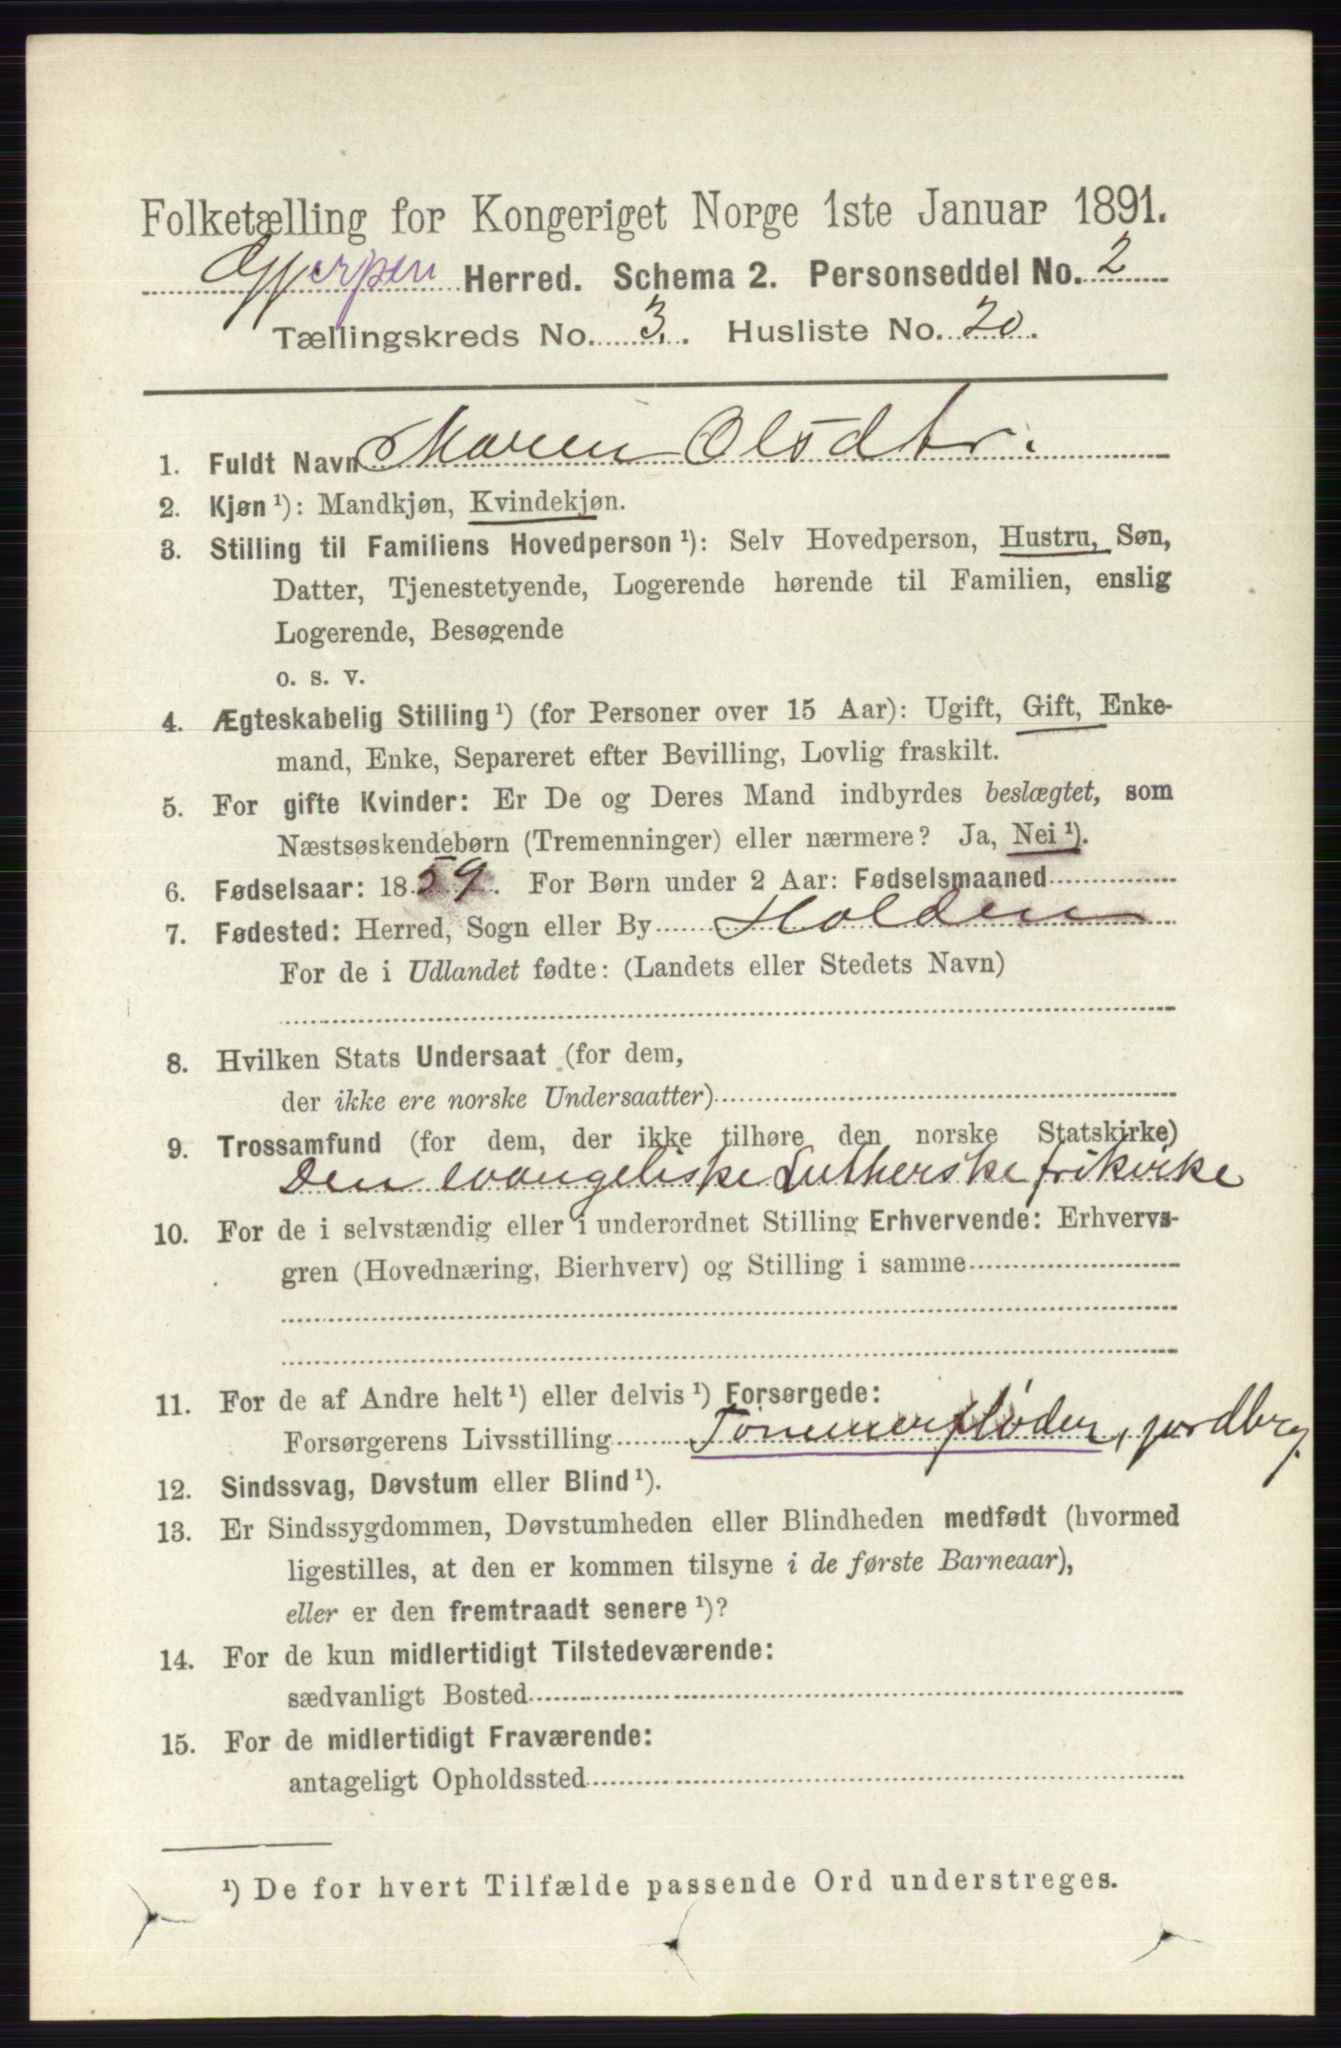 Folketælling for Kongeriget Norge 1ste Januar 1891.
Gjerpen Herred. Schema 2. Personseddel No. 2
Tællingskreds No. 3. Husliste No. 20.
1. Fuldt Navn Maren Olsdtr.
2. Kjøn ¹): Mandkjøn, Kvindekjøn.
3. Stilling til Familiens Hovedperson ¹): Selv Hovedperson, Hustru, Søn,
Datter, Tjenestetyende, Logerende hørende til Familien, enslig
Logerende, Besøgende
o. s. v.
4. Ægteskabelig Stilling ¹) (for Personer over 15 Aar): Ugift, Gift, Enke-
mand, Enke, Separeret efter Bevilling, Lovlig fraskilt.
5. For gifte Kvinder: Er De og Deres Mand indbyrdes beslægtet, som
Næstsøskendebørn (Tremenninger) eller nærmere? Ja, Nei ¹).
6. Fødselsaar: 1859. For Børn under 2 Aar: Fødselsmaaned
7. Fødested: Herred, Sogn eller By Holden
For de i Udlandet fødte: (Landets eller Stedets Navn)
8. Hvilken Stats Undersaat (for dem,
der ikke ere norske Undersaatter)
9. Trossamfund (for dem, der ikke tilhøre den norske Statskirke)
Den evangeliske Lutherske frikirke
10. For de i selvstændig eller i underordnet Stilling Erhvervende: Erhvervs-
gren (Hovednæring, Bierhverv) og Stilling i samme
11. For de af Andre helt ¹) eller delvis ¹) Forsørgede:
Forsørgerens Livsstilling Tømmerfløder, jordbrg.
12. Sindssvag, Døvstum eller Blind ¹).
13. Er Sindssygdommen, Døvstumheden eller Blindheden medfødt (hvormed
ligestilles, at den er kommen tilsyne i de første Barneaar),
eller er den fremtraadt senere ¹)?
14. For de kun midlertidigt Tilstedeværende:
sædvanligt Bosted
15. For de midlertidigt Fraværende:
antageligt Opholdssted
¹) De for hvert Tilfælde passende Ord understreges.